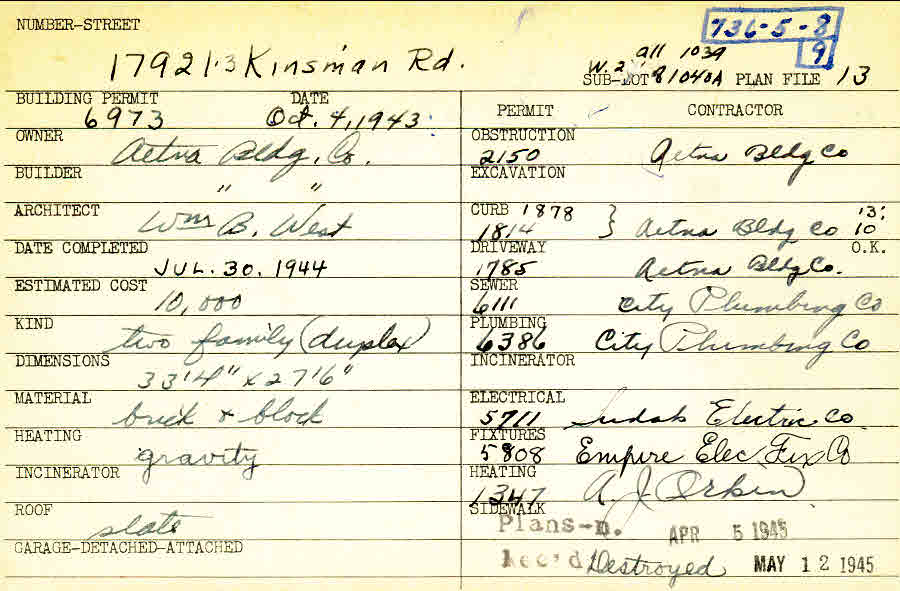 NUMBER-STREET
736-5-8
9
17921-3 Kinsman Rd.
all 1039
W. 2'
SUB-LOT 81040A PLAN FILE 13
BUILDING PERMIT DATE
6973 Oct. 4, 1943
OWNER
Aetna Bldg. Co.
BUILDER
" "
ARCHITECT
Wm B. West
DATE COMPLETED
JUL. 30. 1944
ESTIMATED COST
10,000
KIND
two family (duplex)
DIMENSIONS
33'4" x 27'6"
MATERIAL
brick & block
HEATING
gravity
INCINERATOR
ROOF
slate
GARAGE-DETACHED-ATTACHED
PERMIT CONTRACTOR
OBSTRUCTION
2150 Aetna Bldg Co
EXCAVATION
CURB 1878 13'
1814 } Aetna Bldg Co 10
DRIVEWAY O.K.
1785 Aetna Bldg Co.
SEWER
6111 City Plumbing Co
PLUMBING
6386 City Plumbing Co
INCINERATOR
ELECTRICAL
5711 Electric Co.
FIXTURES
5808 Empire Elec. Fix Co
HEATING
1347 A. J. Orkin
SIDEWALK
Plans-n. APR 5 1945
Rec'd Destroyed MAY 12 1945